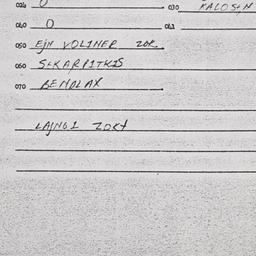 024 0 030 KALOSEN
040 0 041
050 EJN VOLINER ZOR.
060 SEKARPITKIS
070 BENDLAX
LAJNG1 ZOKT